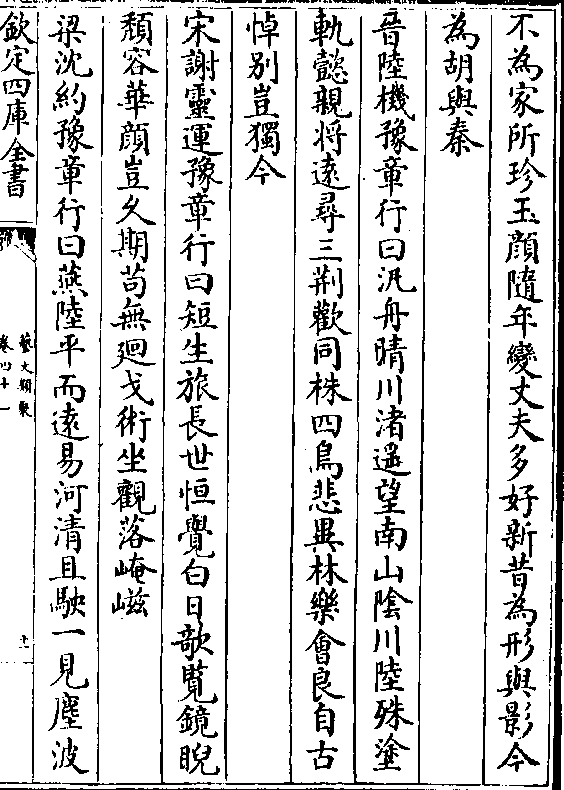 不為家所珍玉顔隨年變丈夫多好新昔為形與影今
為胡與秦
晉陸機豫章行曰汎舟晴川渚遥望南山隂川陸殊塗
軌懿親將逺尋三荆歡同株四鳥悲異林樂會良自古
悼别豈獨今
宋謝靈運豫章行曰短生旅長世恒覺白日欹覧鏡睨
頽容華顔豈乆期茍無廻戈術坐觀落崦嵫
梁沈約豫章行曰燕陸平而逺易河清且駛一見塵波
欽定四庫全書
藝文類聚
卷四十一
十一